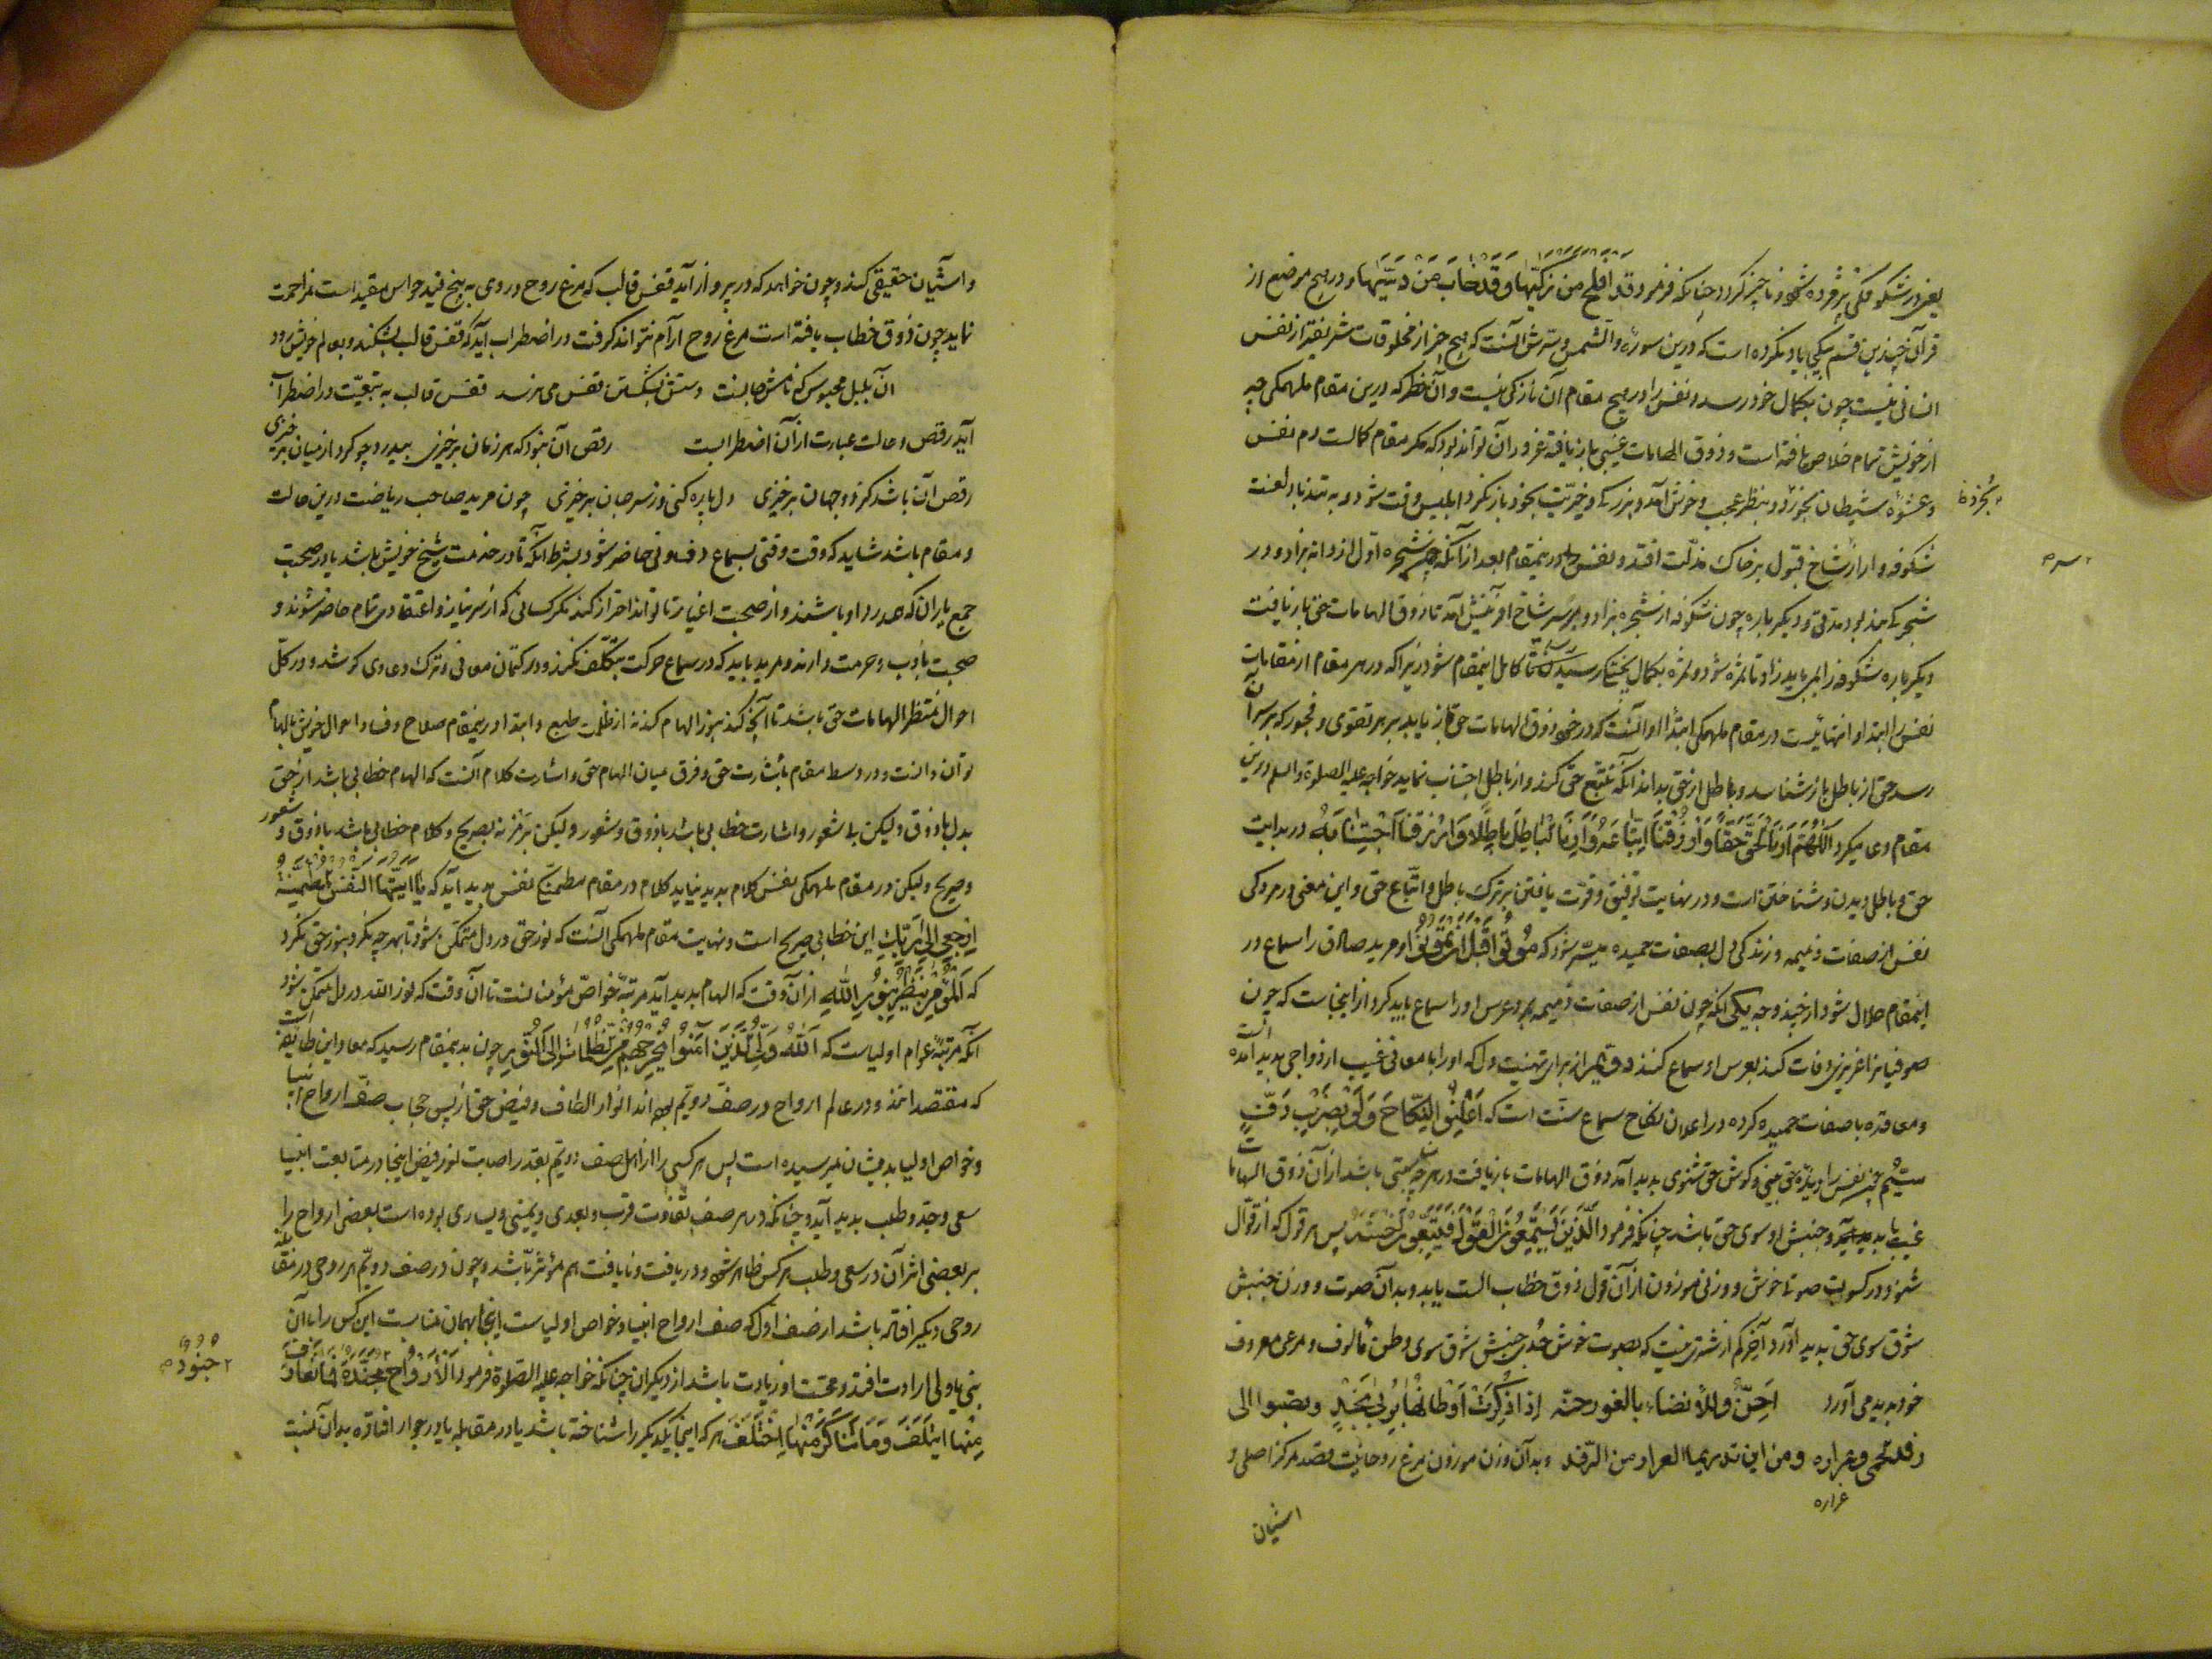 یعنی در شکوفکی پژمرده شود و ناچیز کردد چنانکه فرمود قد افلح من زکّیٰها و قد خاب من دسّیٰها و در هیچ موضع از
قرآن چندین قسم بیکجای یاد نکرده است که درین سورهٔ والشمس و سرّش آنست که هیچ چیز از مخلوقات شریفتر از نفس
انسانی نیست چون بکمال خود رسد و نفس را در هیچ مقام آن نازکی نیست و آن خطر که درین مقام ملهمکی چه
از خویش تمام خلاص نیافته است و ذوق الهامات غیبی باز یافته غرور آن تواند بود که مکر مقام کمالست دم نفس
و عشوهٔ شیطان بخورد و بنظر عجب و خوش آمد و بزرکی و خیریّت بخود باز نکرد ابلیس وقت شود و به تندباد لعنت
شکوفه وار از شاخ قبول بر خاک مذلّت افتد و نفس را درینمقام بعد از آنکه شجره اوّل از دانه بزاد و در
شجرکی بند بود مدتی و دیکر باره چون شکوفه از شجره بزاد و بر سر شاخ آفرینش آمد تا ذوق الهامات حق باز یافت
دیکر باره شکوفه را می باید زاد تا ثمره شود و ثمره بکمال پختکی رسیدن تا کامل اینمقام شود زیرا که در هر مقام از مقامات
نفس را ابتدا و انتهائیست در مقام ملهمکی ابتدا او آنست که در خود ذوق الهامات حق باز یابد بر هر تقوی و فجور که بر سر آن
رسد حق از باطل باز شناسد و باطل از حق بداند آنکه تتبّع حق کند و از باطل اجتناب نماید خواجه علیه الصلوة و السلم درین
مقام دعا میکرد اللّهم ارنا الحقّ حقّا و ارزقنا اتباعه و ارنا الباطل باطلا و ارزقنا اجتنابه در بدایت
حق و باطل دیدن و شناختن است و در نهایت توفیق و قوّت یافتن بر ترک باطل و اتّباع حق و این معنی در مردکی
نفس از صفات ذمیمه و زندکی دل بصفات حمیده میسّر شود که موتوا قبل ان تموتوا و مرید صادق را سماع در
اینمقام حلال شود از چند وجه یکی آنکه چون نفس از صفات ذمیمه بمرد و عرس او را سماع باید کرد و از اینجاست که چون
صوفیانرا عزیزی وفات کند بعرس او سماع کنند دویم از برای تهنیت دل که او را با معانی غیب ازدواجی پدید آمده است
و معاقده با صفات حمیده کرده در اعلان نکاح سماع سنّت است که اعلنوا النکاح و لو بضرب دفّ
سیّم چون نفس را دیدهٔ حق بینی و کوش حق شنوی پدید آمد و ذوق الهامات باز یافت در هر چه بیتی باشد از آن ذوق الهامات
غیب با پدید آید و جنبش او سوی حق باشد چنانکه فرمود الّذین یستمعون القول فیتّبعون احسنه پس هر قول که از قوّال
شنود در کسوت صوتی خوش و وزنی موزون از آن قول ذوق خطاب الست یابد و بدان صوت و وزن جنبش
شوق سوی حق پدید آورد آخر کم از شتری نیست که بصوت خوش حُدی جنبش شوق سوی وطن مألوف و مرعی معروف
خود پدید می آورد احنّ و للأنضاء بالغور حنّه اذا ذکرت اوطانها بربی نجد و یصبوا الی
عراره و من این تدریها العراد من الرّفد و بدان وزن موزون مرغ روحانیت قصد مرکز اصلی و
عراره
اشیان
بخُرد ظ
و آشیان حقیقی کند و چون خواهد که در پرواز آید قفس قالب که مرغ روح در وی به پنج قید حواس مقیّد است مزاحمت
نماید چون ذوق خطاب یافته است مرغ روح آرام نتواند کرفت در اضطراب آید که قفس قالب بشکند و بعالم خویش رود
آن بلبل محبوس که نامش جانست دستش بشکستن قفس می نرسد قفس قالب به تبعیّت در اضطراب
آید رقص و حالت عبارت از آن اضطرابست رقص آن نبود که هر زمان برخیزی بیدرد چو کرد از میان برخیزی
رقص آن باشد کز دو جهان برخیزی دل پاره کنی وز سر جان برخیزی چون مرید صاحب ریاضت درین حالت
و مقام باشد شاید که وقت وقتی بسماع صوفیان حاضر شود بشرط آنکه تا در خدمت شیخ خویش باشد یا در صحبت
جمع یاران که همدرد او باشند و از صحبت اغیار تا تواند احتراز کند مکر کسانی که از سر نیاز و اعتقادی تمام حاضر شوند و
صحبت بادب و حرمت دارند و مرید باید که در سماع حرکت بتکلّف نکند و در کتمان معانی و ترک دعاوی کوشد و در کلّ
احوال منتظر الهامات حق باشد تا آنچه کند بنور الهام کند نه از ظلمت طبع و ابتدا درینمقام صلاح و فساد احوال خویش بالهام
توان دانست و در وسط مقام باشارت حق و فرق میان الهام حق و اشارت کلام آنست که الهام خطابی باشد از حق
بدل باذوق و لیکن بی شعور و اشارت خطابی باشد باذوق و شعور و لیکن برمز نه بصریح و کلام خطابی باشد باذوق و شعور
و صریح و لیکن در مقام ملهمکی نفس کلام پدید نیاید کلام در مقام مطمئنکی نفس پدید آید که یا ایّتها النّفس المطمئنّة
ارجعی الی ربّک این خطابی صریح است و نهایت مقام ملهمکی آنست که نور حق در دل متمکّن شود تا بهر چه نکرد بنور حق نکرد
که المؤمن ینظر بنور اللّه از آن وقت که الهام پدید آید مرتبهٔ خواصّ مؤمنانست تا آن وقت که نور اللّه در دل متمکّن شود
آنکه مرتبهٔ عوام اولیاست که اللّه ولیّ الّذین آمنوا یخرجهم من الظّلمات الی النّور چون بدینمقام رسید که معاد این طایفه است
که مقتصدانند و در عالم ارواح در صفّ دویّم بوده اند انوار الطاف و فیض حق از پس حجاب صفّ ارواح انبیا
و خواص اولیا بدیشان میرسیده است پس هر کسی را از اهل صف دویّم بقدر اصابت نور فیض اینجا در متابعت انبیا
سعی و جدّ و طلب پدید آید و چنانکه در هر صف تفاوت قرب و بعدی و یمینی و یساری بوده است بعضی ارواح را
بر بعضی اثر آن در سعی و طلب هر کس ظاهر شود و در یافت و نایافت هم مؤثر باشد و چون در صف دویّم هر روحی در مقابله
روحی دیکر افتاده باشد از صف اوّل که صف ارواح انبیا و خواص اولیاست اینجا بهمان مناسبت این کس را با آن
نبی یا ولی ارادت افتد و محبّت او زیادت باشد از دیکران چنانکه خواجه علیه الصّلوة فرمود الارواح مجنّدة فما تعارف
منها ایتلف و ما تناکر منها اختلف هر که اینجا یکدیکر را شناخته باشد یا در مقابله یا در جوار افتاده بدان نسبت
جنودٌ